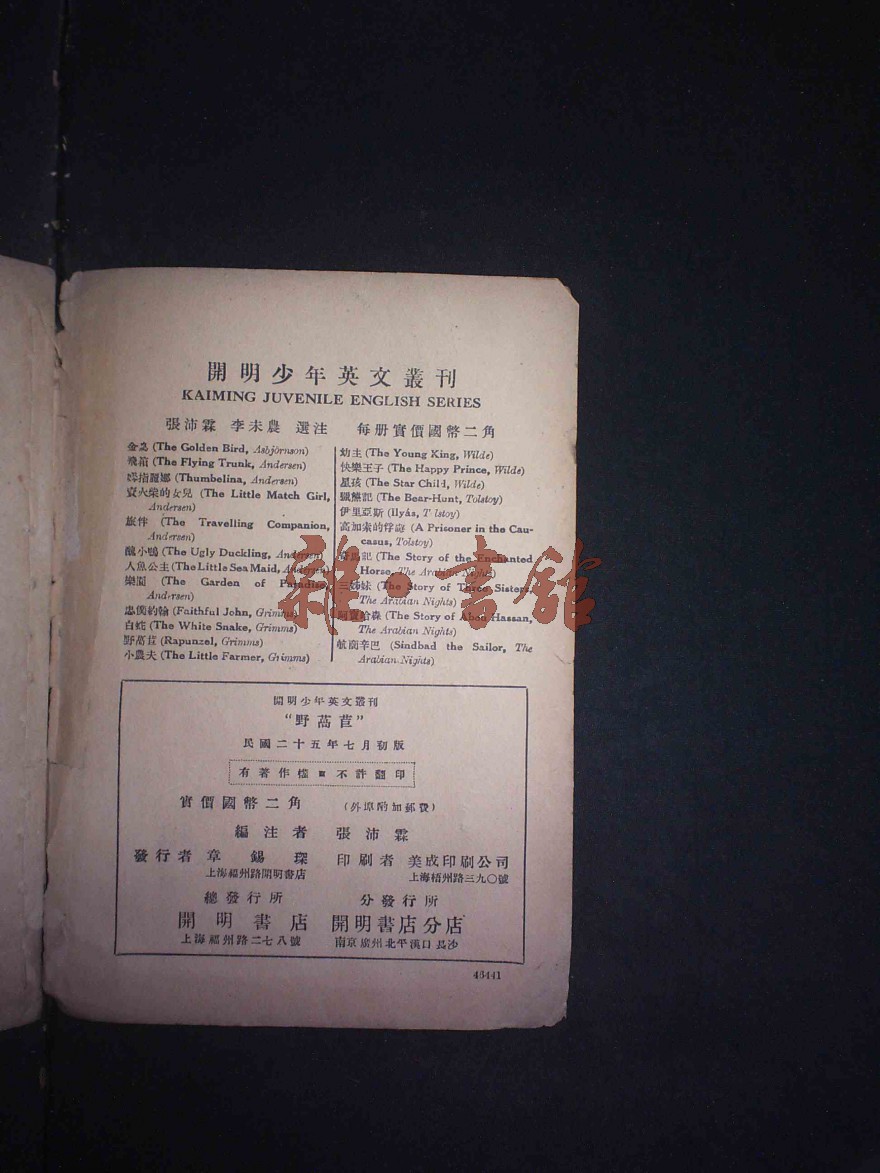 開明少年英文叢刊
KAIMING JUVENILE ENGLISH SERIES
張沛霖 李未農 選注 每册實價國幣二角
金鳥 (The Golden Bird, Asbjörnson)
飛箱 (The Flying Trunk, Andersen)
拇指麗娜 (Thumbelina, Andersen)
賣火柴的女兒 (The Little Match Girl,
Andersen)
旅伴 (The Travelling Companion,
Andersen)
醜小鴨 (The Ugly Duckling, Andersen)
人魚公主 (The Little Sea Maid, Andersen)
樂園 (The Garden of Paradise,
Andersen)
忠僕約翰 (Faithful John, Grimms)
白蛇 (The White Snake, Grimms)
野萵苣 (Rapunzel, Grimms)
小農夫 (The Little Farmer, Grimms)
幼主 (The Young King, Wilde)
快樂王子 (The Happy Prince, Wilde)
星孩 (The Star Child, Wilde)
獵熊記 (The Bear-Hunt, Tolstoy)
伊里亞斯 (Ilyás, Tolstoy)
高加索的俘虜 (A Prisoner in the Cau-
casus, Tolstoy)
馬記 (The Story of the Enchanted
Horse, The Arabian Nights)
三姊妹 (The Story of Three Sisters,
The Arabian Nights)
哈森 (The Story of Abou Hassan,
The Arabian Nights)
航商辛巴 (Sindbad the Sailor, The
Arabian Nights)
雜·書館
開明少年英文叢刊
“野萵苣”
民國二十五年七月初版
有著作權 不許翻印
實價國幣二角 (外埠附加郵費)
編注者 張沛霖
發行者 章錫琛
上海福州路開明書店
印刷者 美成印刷公司
上海梧州路三九〇號
總發行所
開明書店
上海福州路二七八號
分發行所
開明書店分店
南京廣州北平漢口長沙
46441